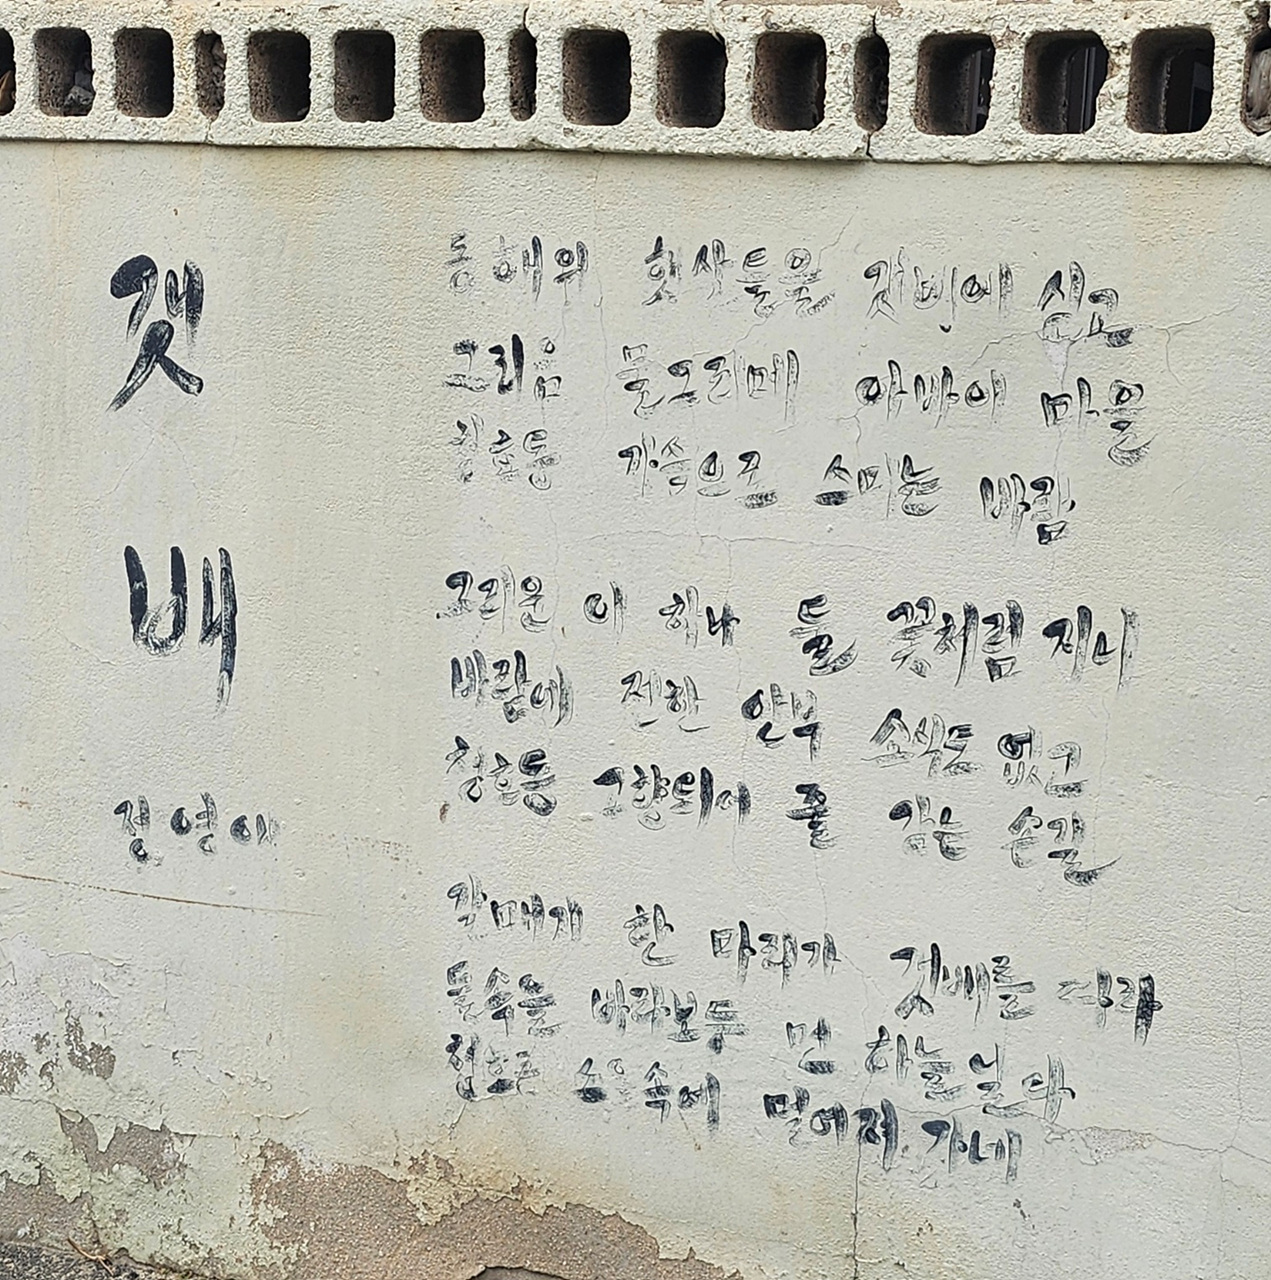 갯배
정영애
동해의 햇살들을 갯배에 싣고
그리움 물오리떼 아바이 마을
청호동 가슴으로 스미는 바람
그리운 이 하나 둘 꽃처럼 지니
바람에 전한 안부 소식도 없고
청호동 고향되어 줄 감는 손길
갈매기 한 마리가 갯배를 따라
물속을 바라보듯 먼 하늘 날다
청호동 속에 멀어져 가네